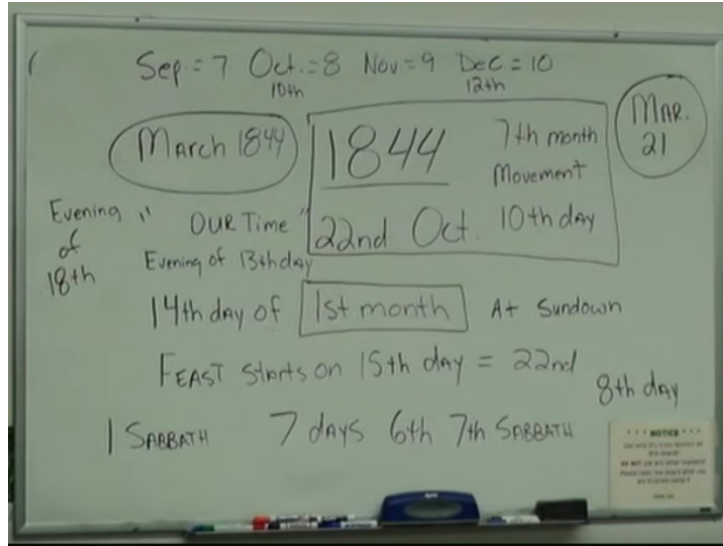 Sep. = 7 Oct. = 8 Nov. = 9 Dec = 10
10th 12th
March 1844
1844
7th month
Movement
22nd Oct. 10th day
MAR.
21
Evening
of
18th
" OUR Time "
Evening of 13th day
14th day of 1st month At Sundown
FEAST Starts on 15th day = 22nd
8th day
1 SABBATH 7 days 6th 7th SABBATH
NOTICE